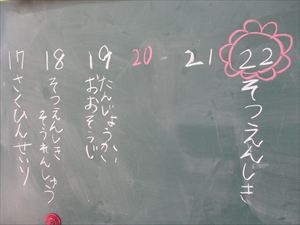 17
さくひんせいり
18
そつえんしき
そうれんしゅう
19
たんじょうかい
おおそうじ
20
21
22
そつえんしき